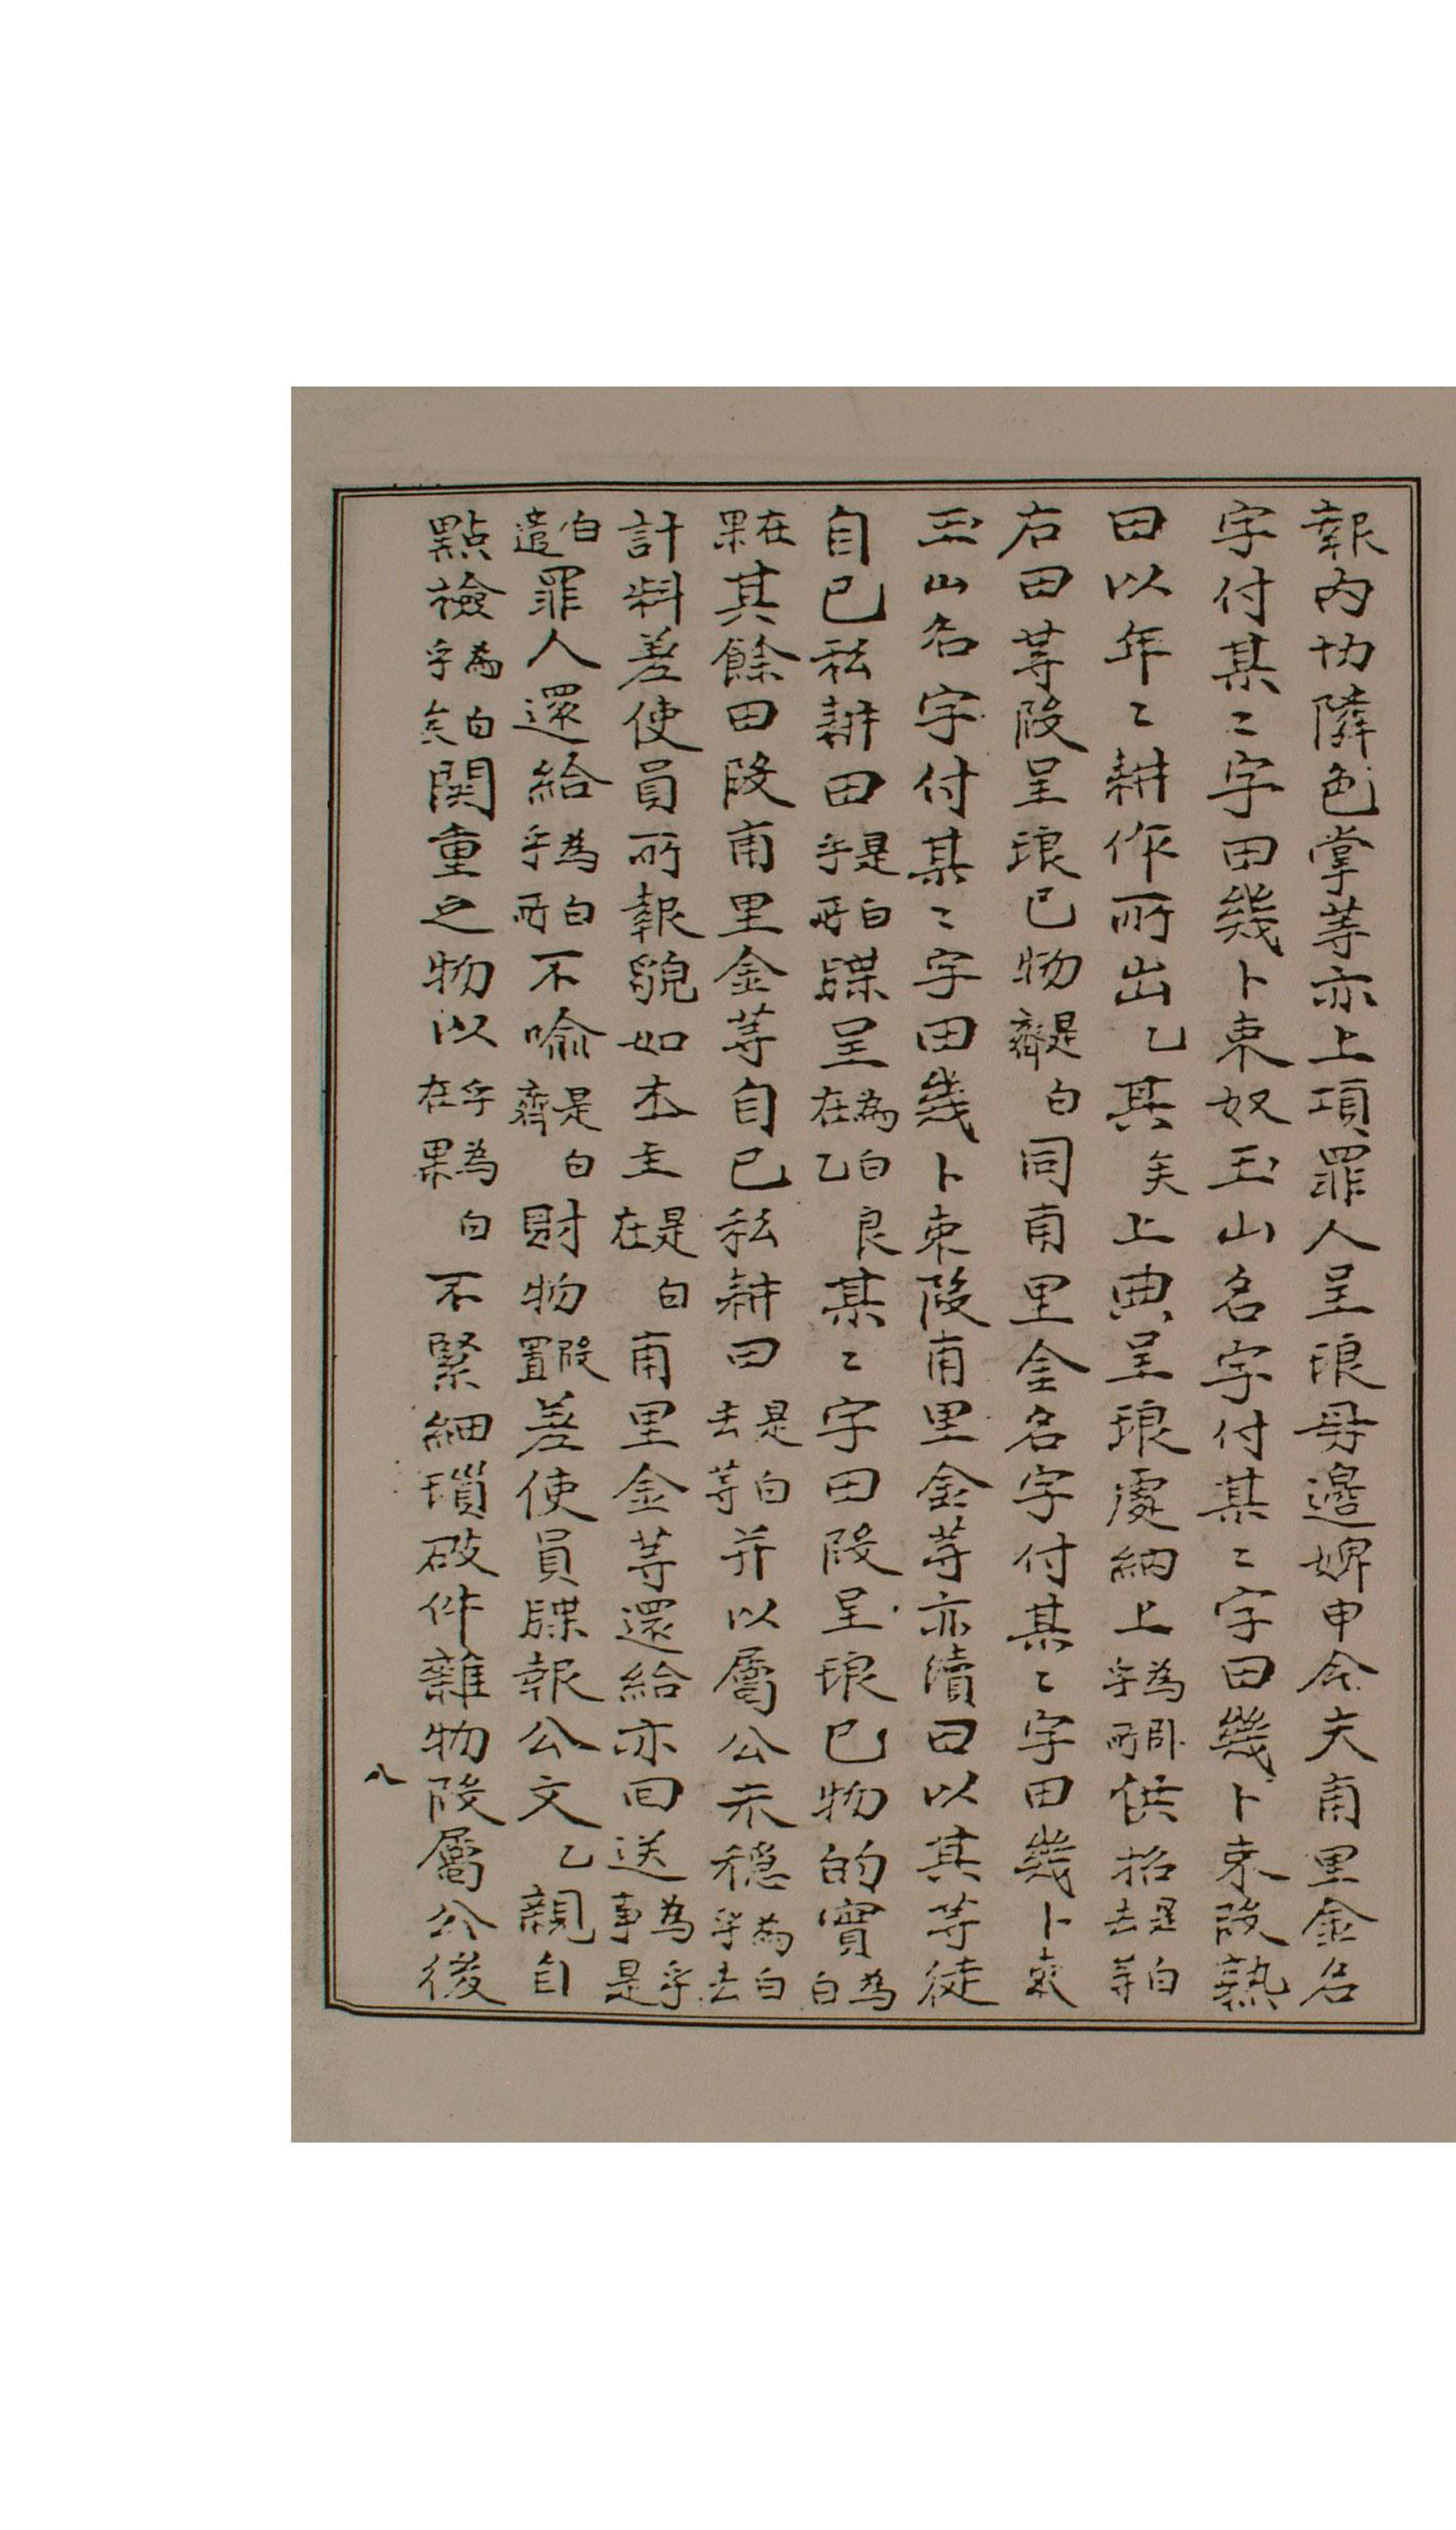 報內切隣色掌等亦上項罪人呈琅母邊婢申今夫甫里金名
字付某〻字田幾卜束奴玉山名字付某〻字田幾卜束段熟
田以年〻耕作所出乙其矣上典呈琅處納上爲乎所供招是白去等
右田等段呈琅己物是白齊同甫里金名字付某〻字田幾卜束
玉山名字付某〻字田幾卜束段甫里金等亦續田以其等徒
自己私耕田是白乎所牒呈爲白在乙良某〻字田段呈琅己物的實爲白
在果其餘田段甫里金等自己私耕田是白去等并以屬公未穩爲白乎去
計料差使員所報貌如本主是白在甫里金等還給亦回送爲乎事是
白遣罪人還給爲白乎所不喻是白齊財物段置差使員牒報公文乙親自
點檢爲白乎矣関重之物以乎爲白在果不緊細瑣破件雜物段屬公後
八